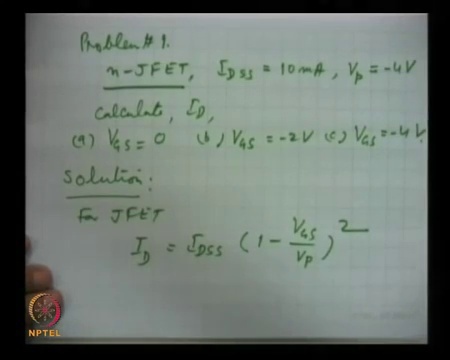 Problem # 1.
n-JFET, IDSS = 10 mA, Vp = -4V
Calculate, ID,
(a) VGS = 0 (b) VGS = -2V (c) VGS = -4V.
Solution:
For JFET
ID = IDSS (1 - VGS/Vp)²
NPTEL